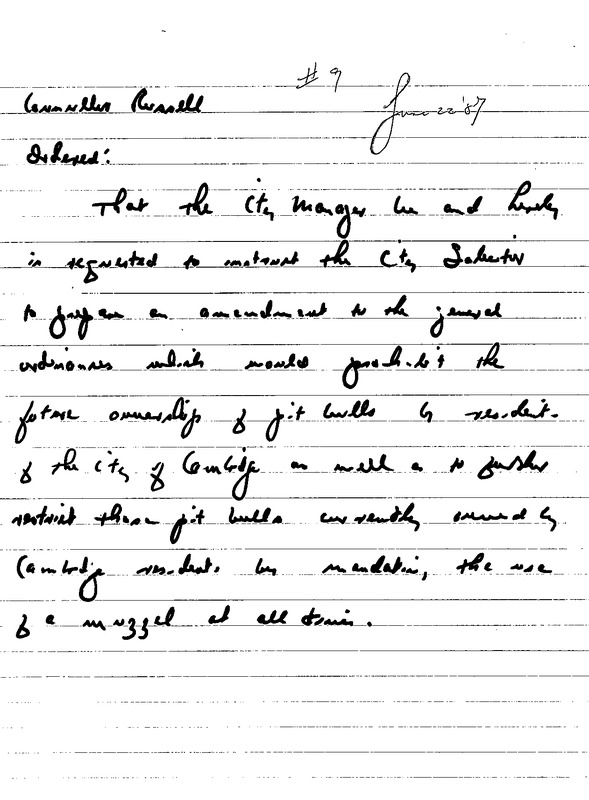 # 9
Councillor Russell
June 22 '87
Ordered:
That the City Manager be and hereby
is requested to instruct the City Solicitor
to prepare an amendment to the general
ordinances which would prohibit the
future ownership of pit bulls by residents
of the City of Cambridge as well as to further
restrict those pit bulls currently owned by
Cambridge residents by mandating the use
of a muzzel at all times.